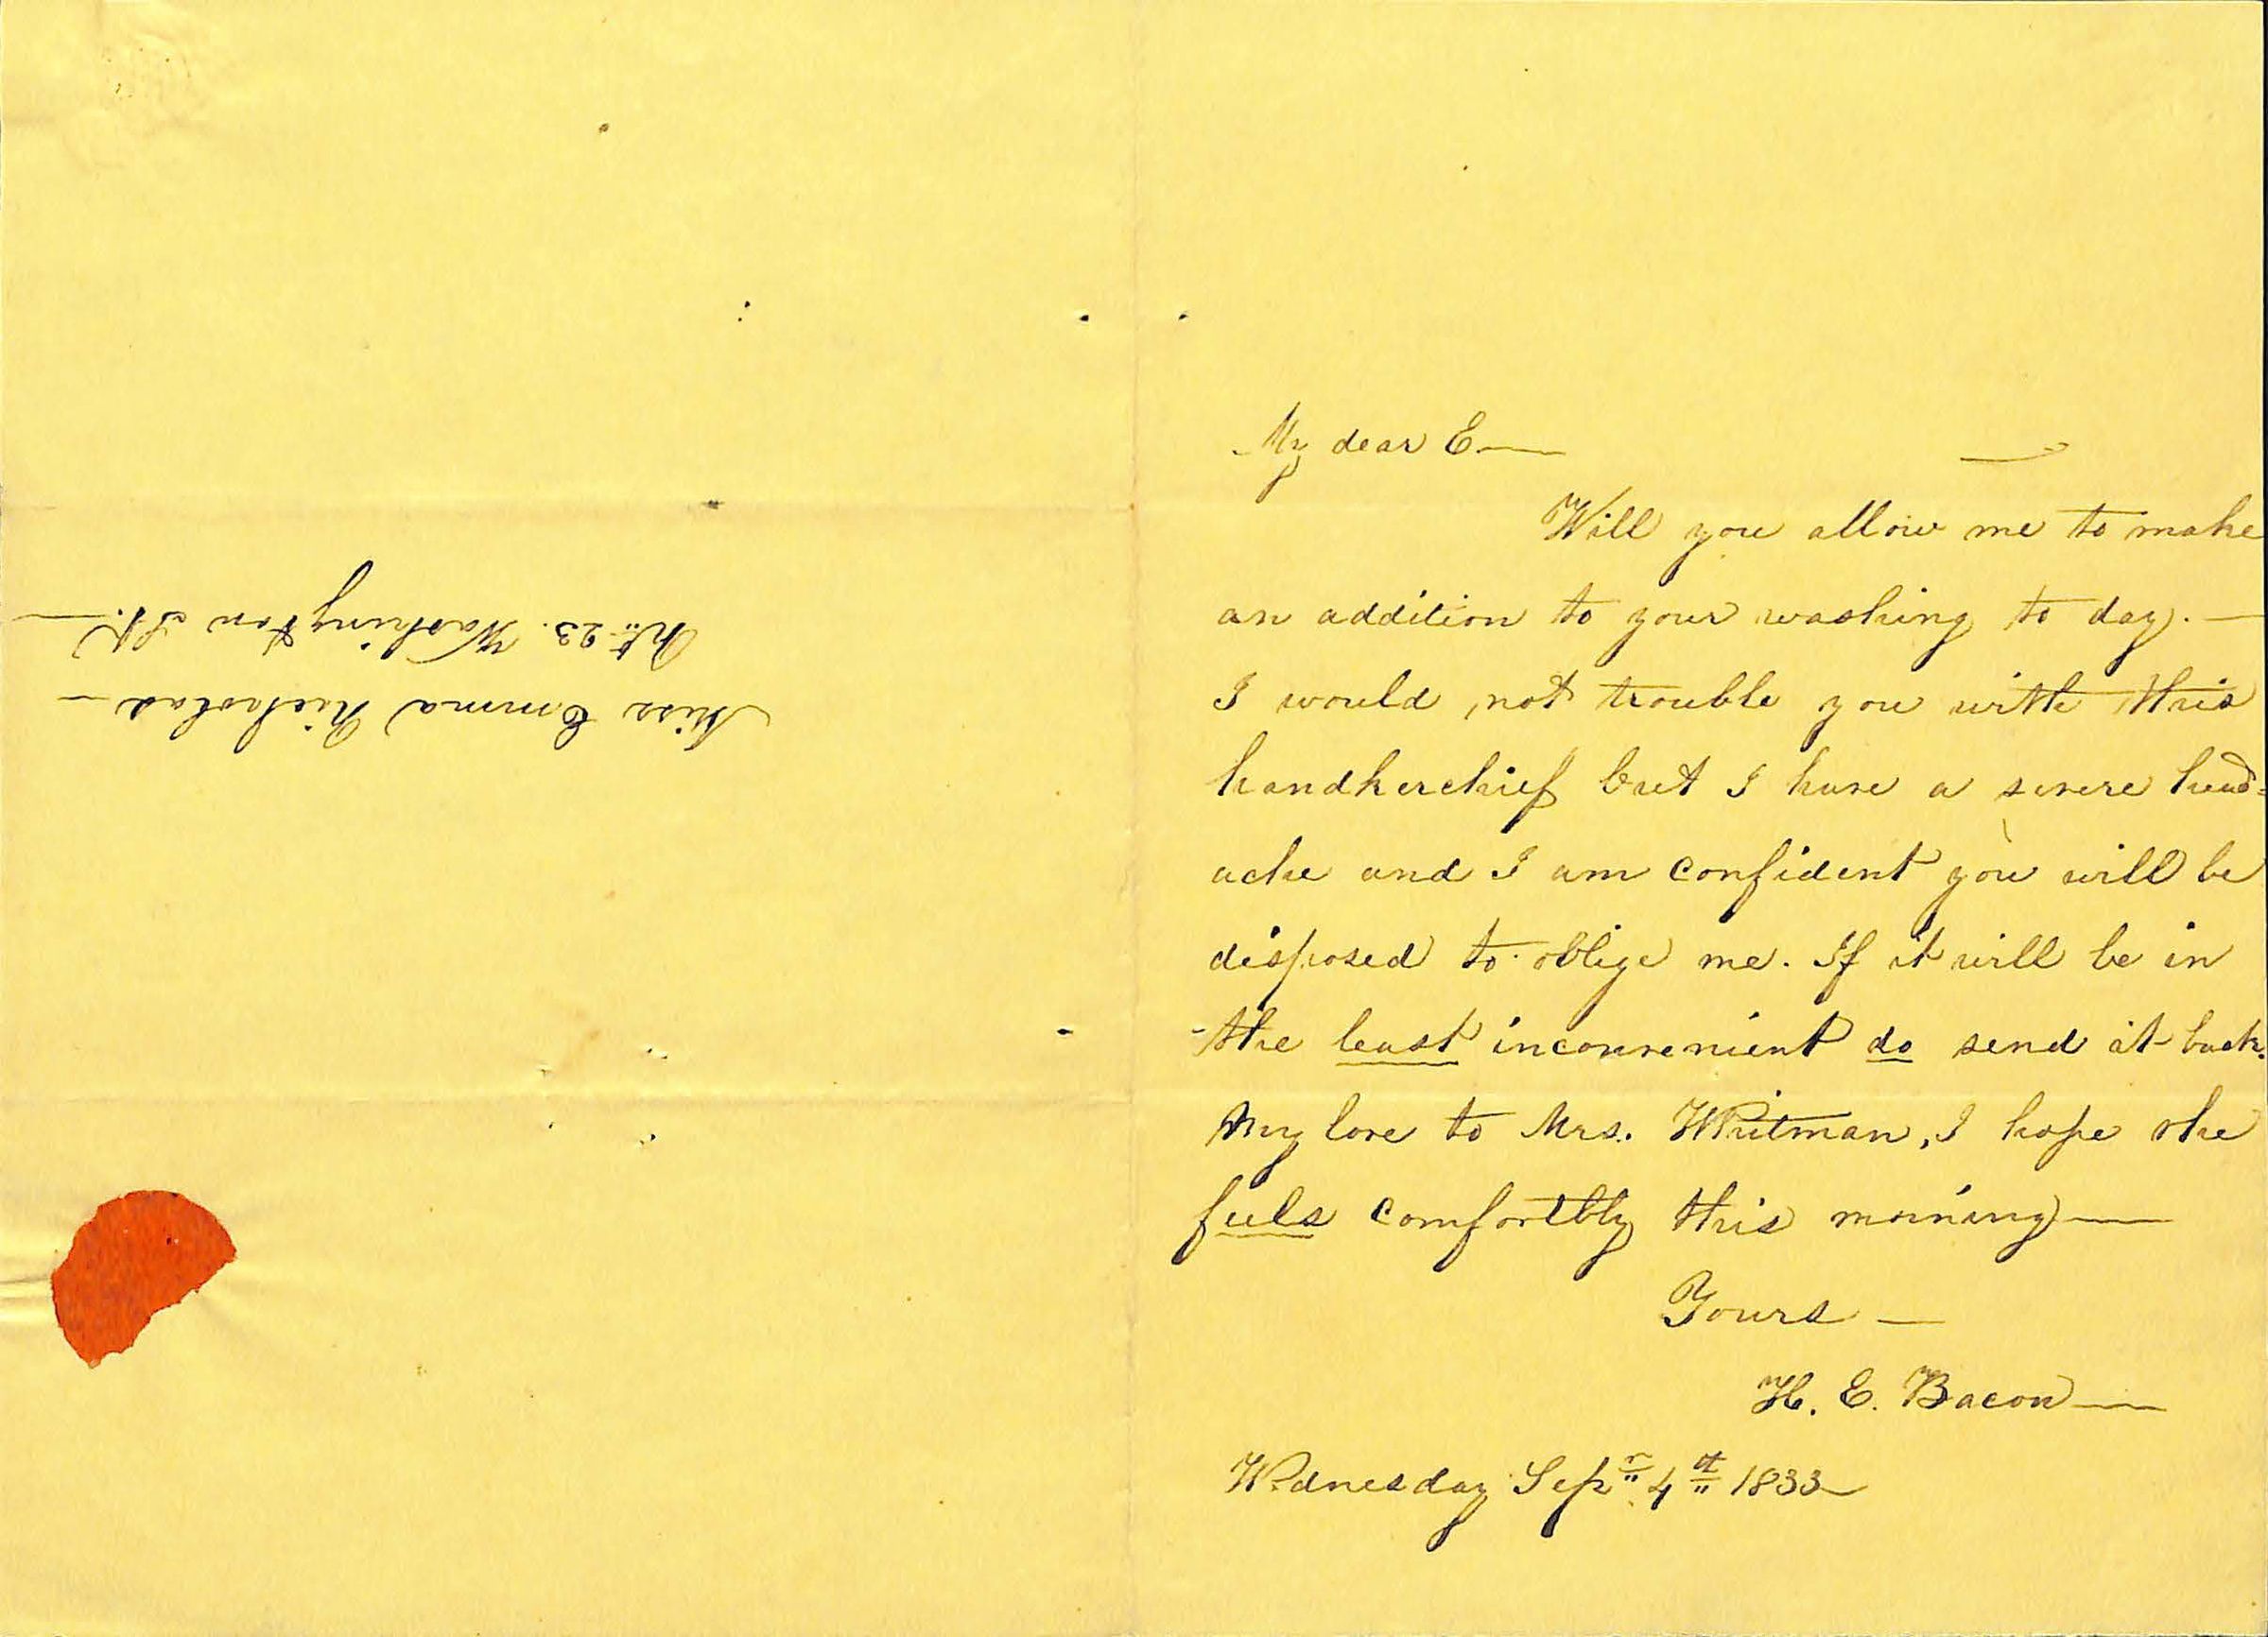 My dear E—
Will you allow me to make
an addition to your washing to day. —
I would not trouble you with this
handkerchief but I have a severe head=
ache and I am confident you will be
disposed to oblige me. If it will be in
the least inconvenient do send it back.
My love to Mrs. Whitman, I hope she
feels comfortbly this morning —
Yours —
H. E. Bacon —
Wednesday Sepr 4th 1833
Miss Emma Nicholas —
No. 23. Washington St. —